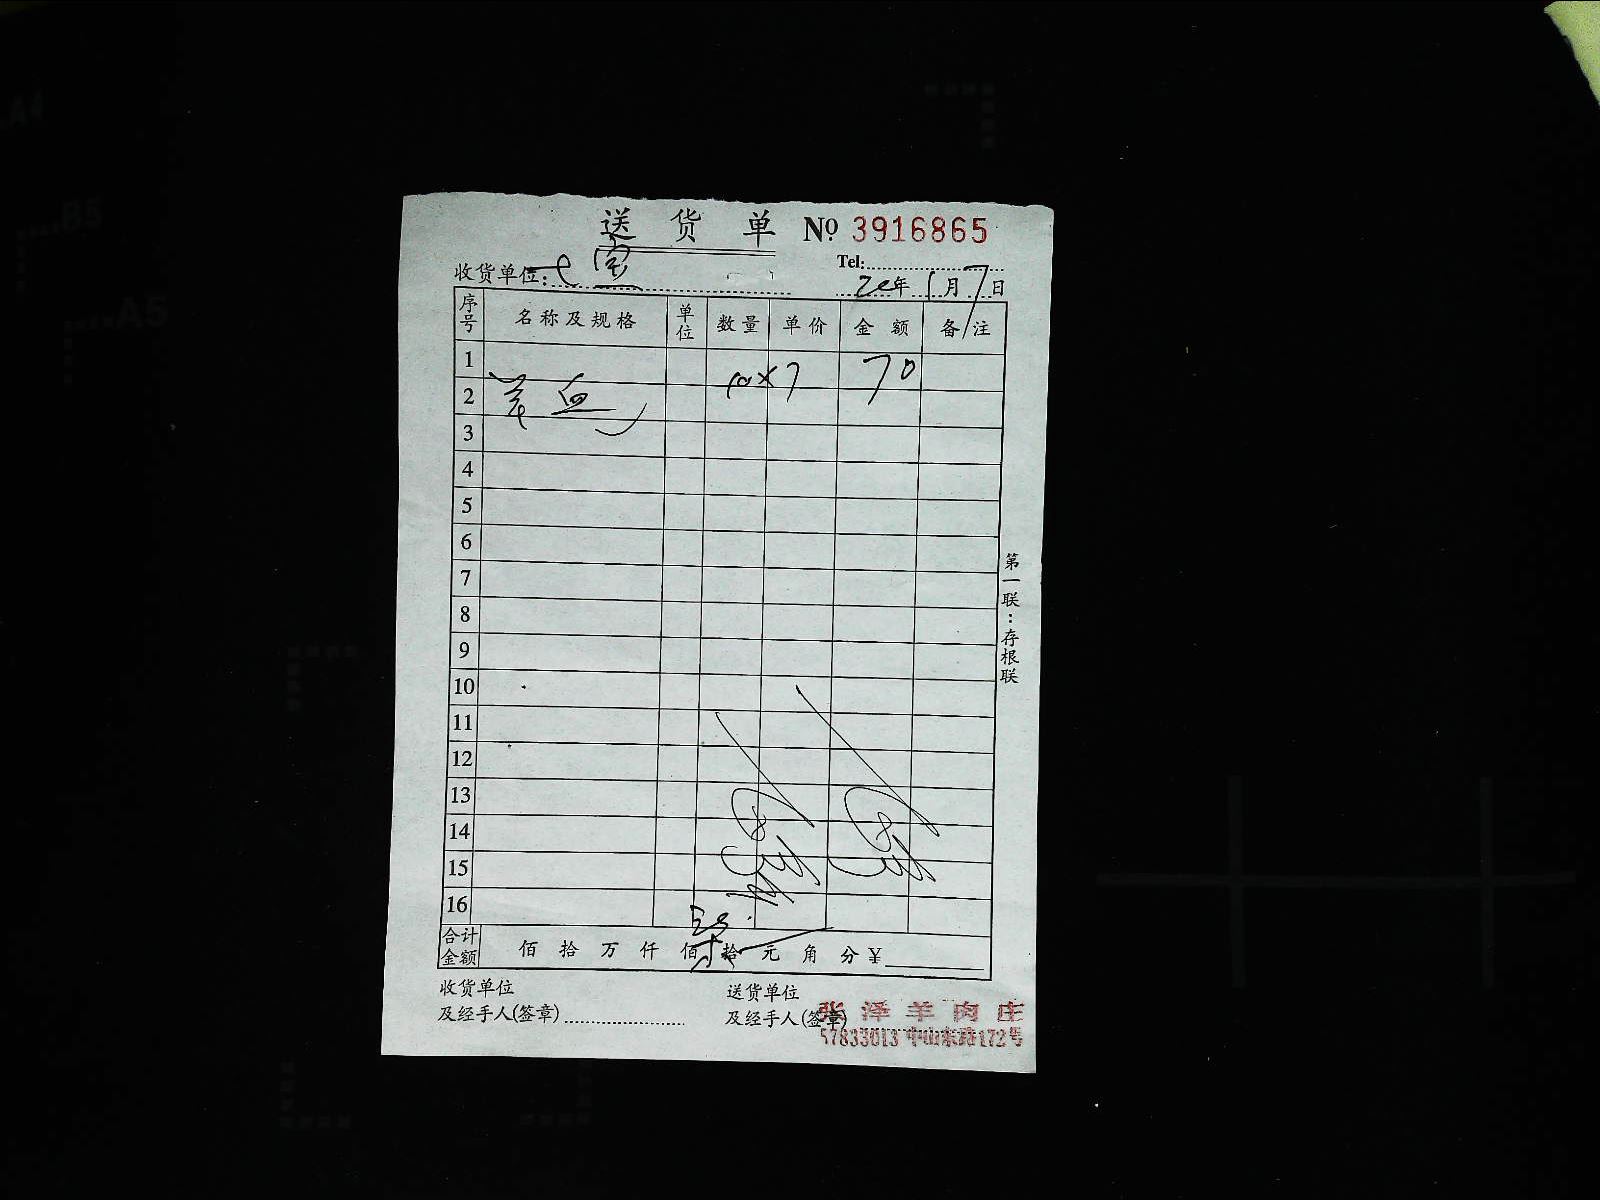 送 货 单 № 3916865
Tel:
收货单位: 七宝
20年1月7日
序号 名称及规格 单位 数量 单价 金额 备注
1
2 羊血 10×7 70
3
4
5
6
7
8
9
10
11
12
13
14
15
16
合计金额 佰 拾 万 仟 佰 拾 元 角 分 ¥
收货单位 送货单位
及经手人(签章) 及经手人(签章)
张泽羊肉庄
57833013 中山东路172号
第一联:存根联
A4
B5
A5